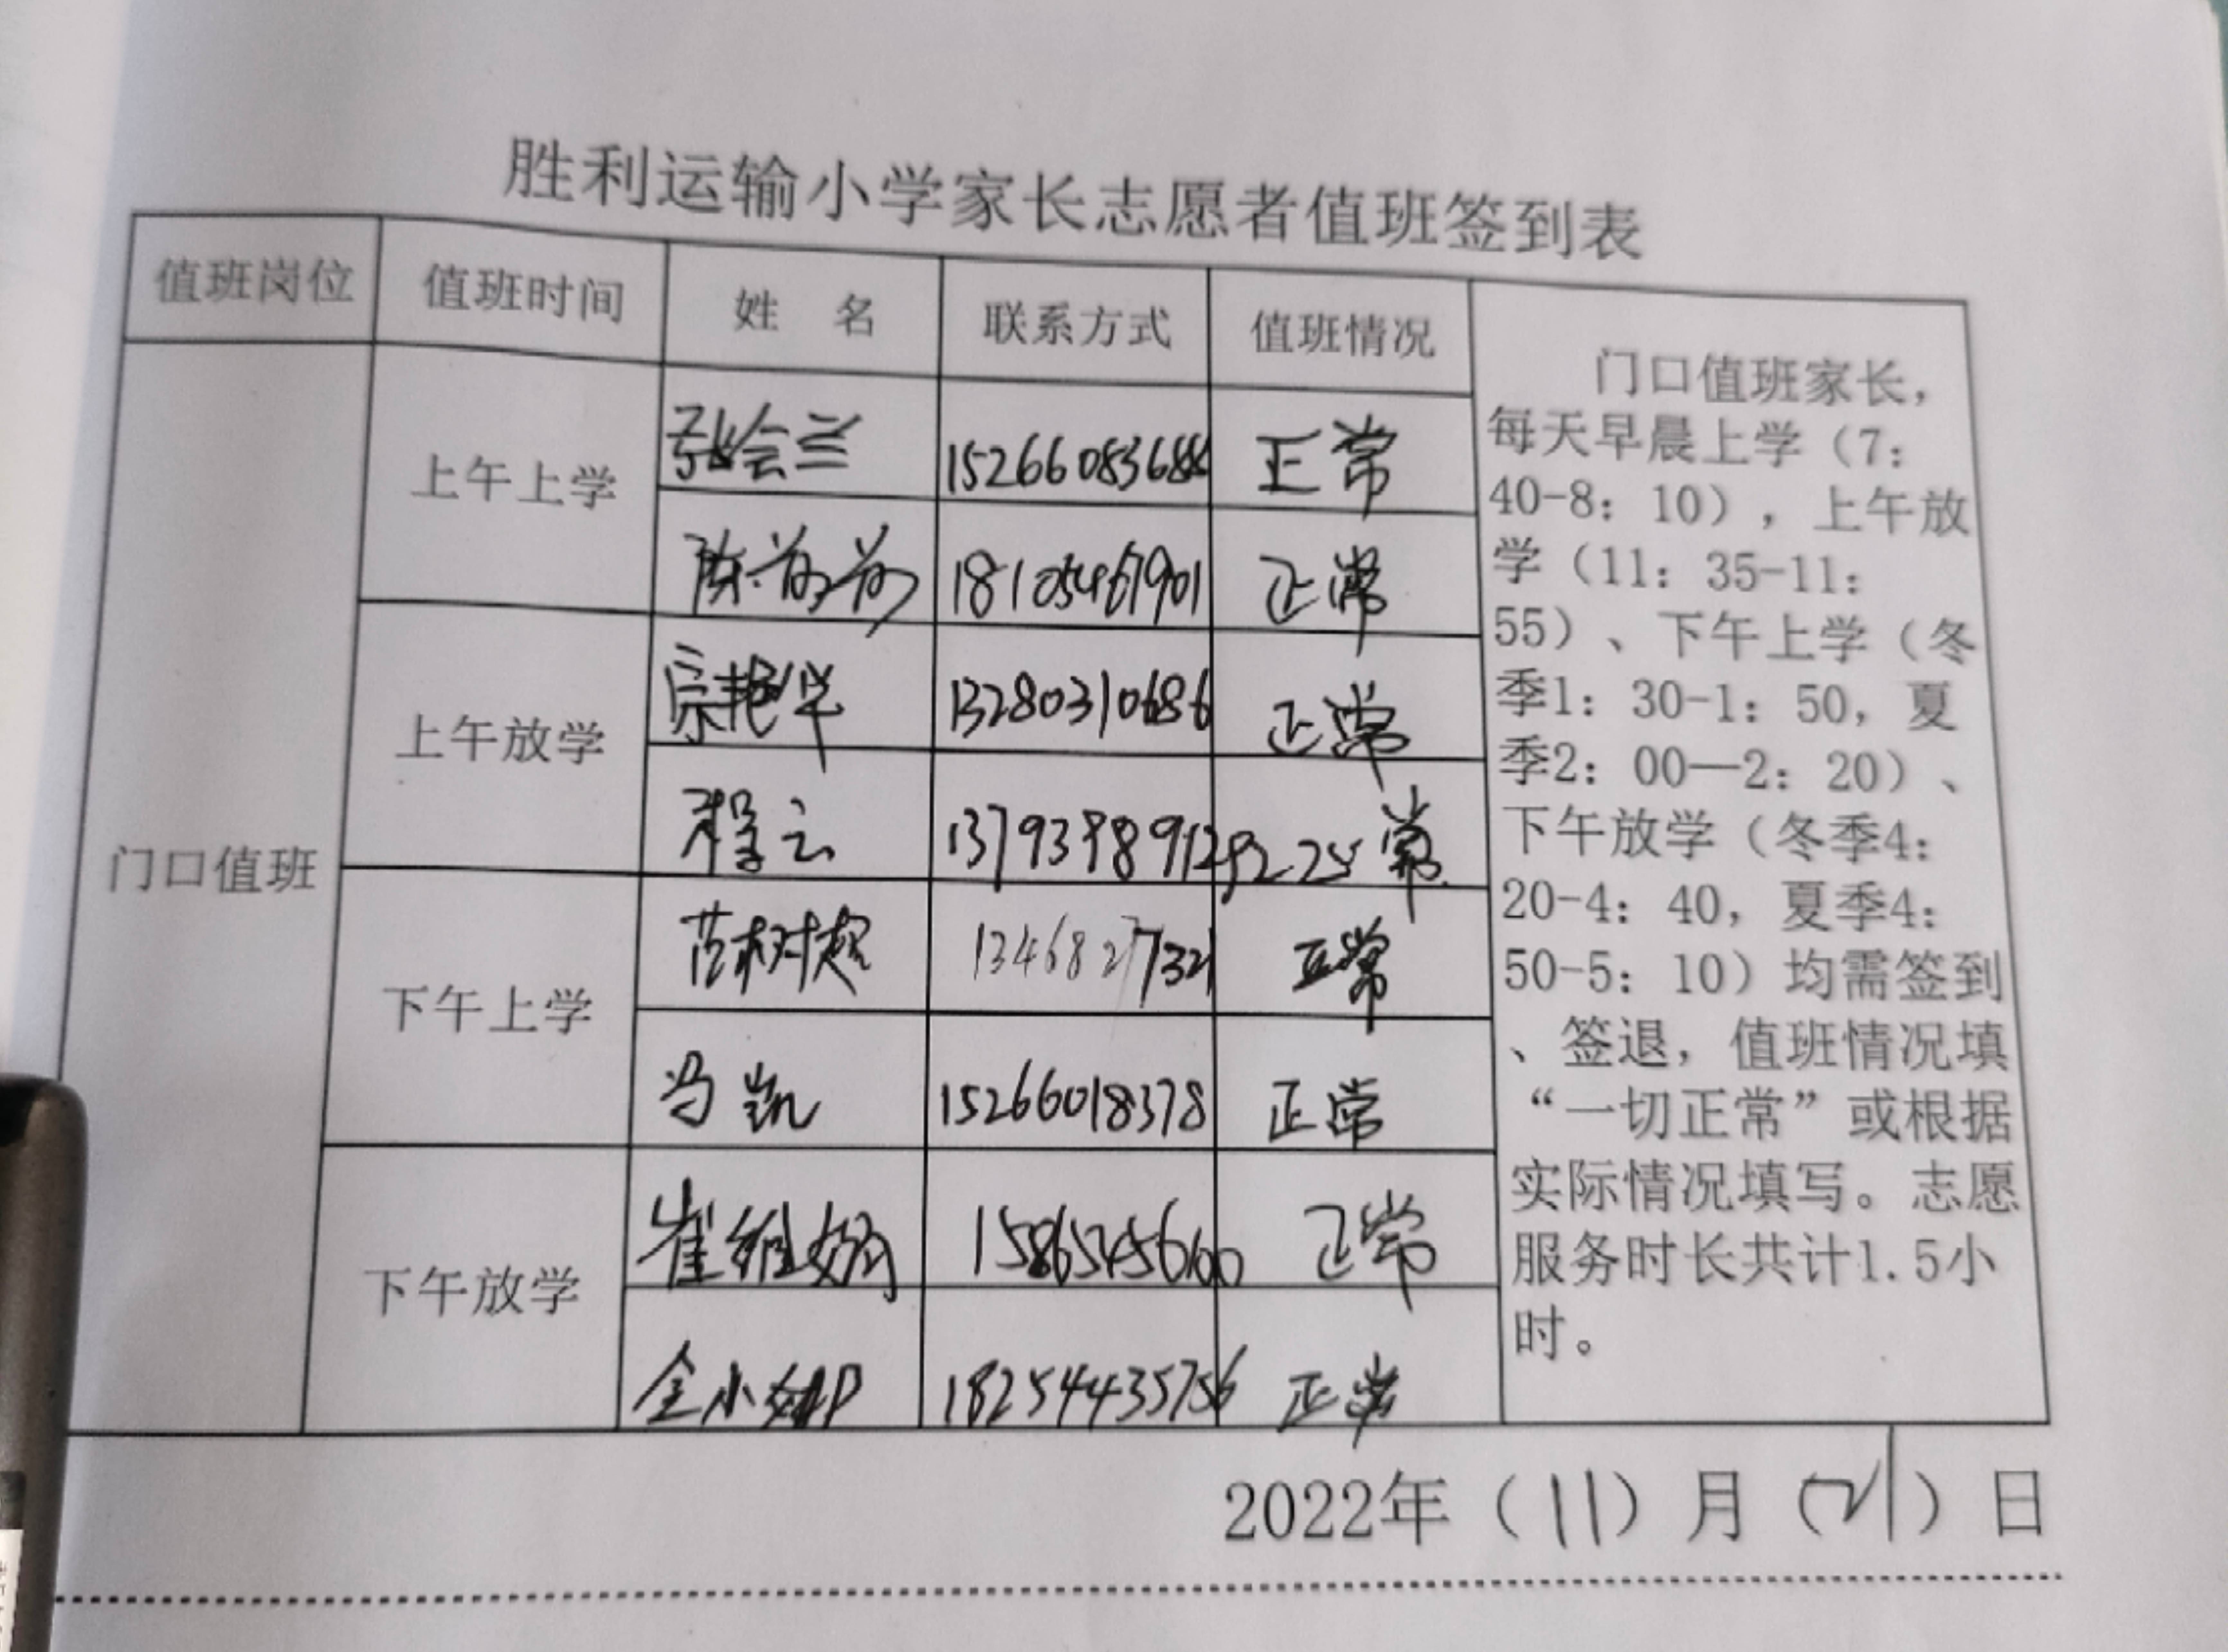 胜利运输小学家长志愿者值班签到表
值班岗位 值班时间 姓 名 联系方式 值班情况
门口值班
上午上学
张会兰 正常
陈 18105467901 正常
上午放学
宗艳华 13280310686 正常
程云 常
下午上学
范树超 正常
冯凯 15266018378 正常
下午放学
崔维娟 正常
金小 18254435756 正常
门口值班家长,
每天早晨上学（7:
40-8: 10），上午放
学（11: 35-11:
55）、下午上学（冬
季1: 30-1: 50, 夏
季2: 00—2: 20）、
下午放学（冬季4:
20-4: 40, 夏季4:
50-5: 10）均需签到
、签退, 值班情况填
“一切正常”或根据
实际情况填写。志愿
服务时长共计1.5小
时。
2022年（11）月（21）日